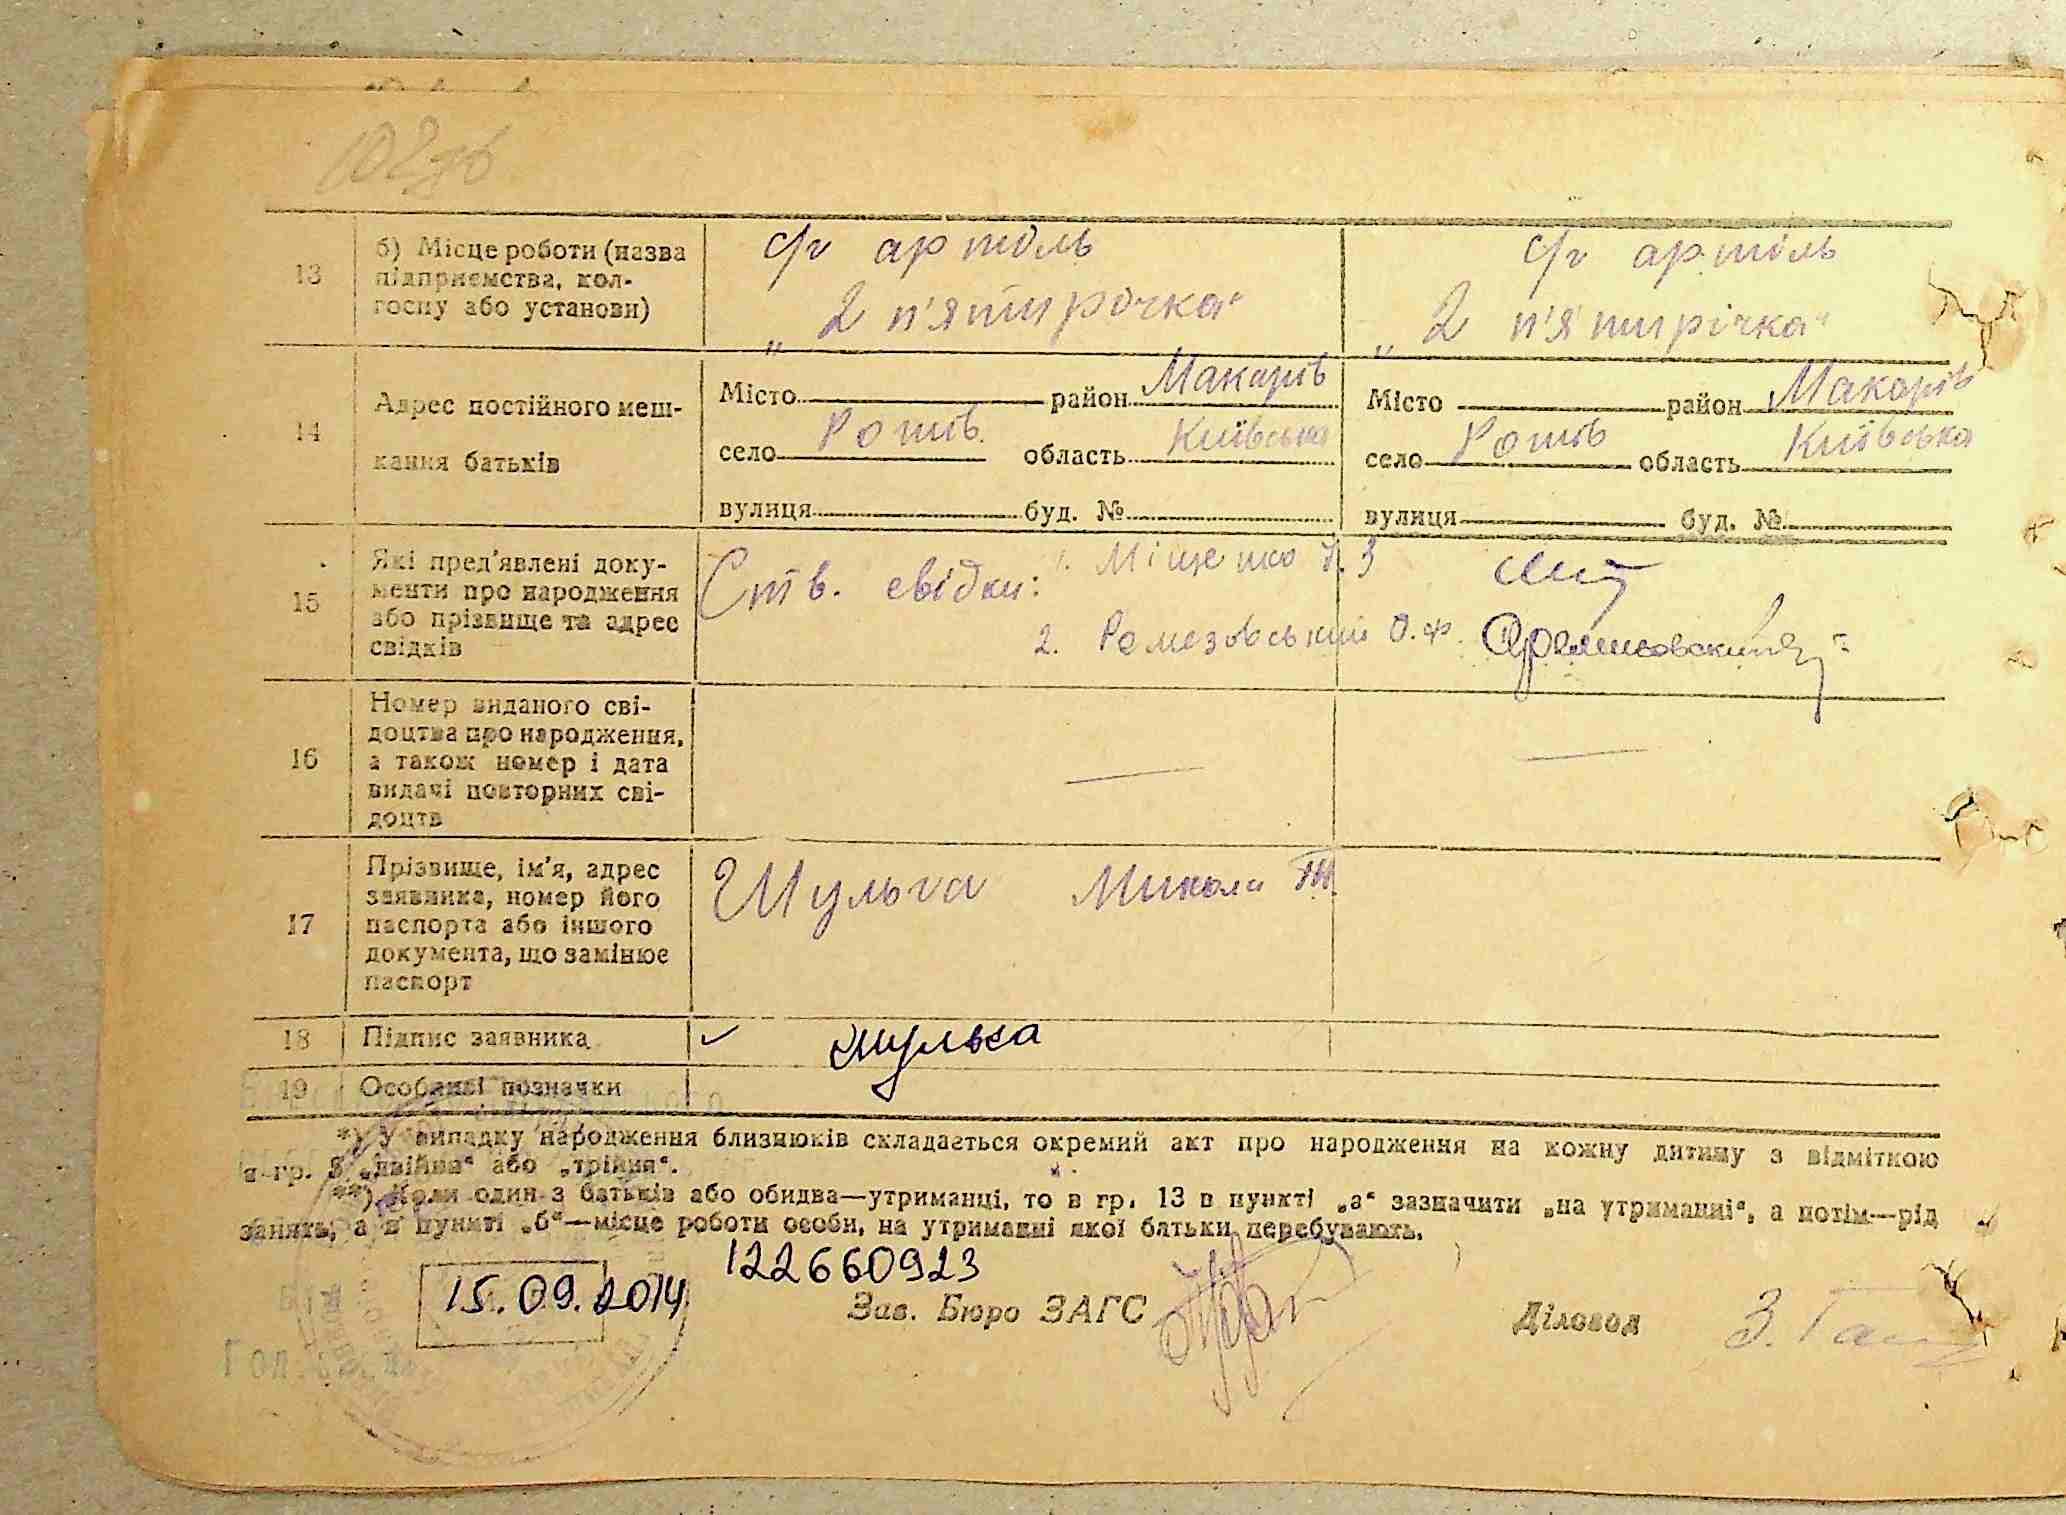 102зв
13
б) Місце роботи (назва
підприємства, кол-
госпу або установи)
с/г артіль
„2 п'ятирочка"
с/г артіль
„2 п'ятирічка"
14
Адрес постійного меш-
кання батьків
Місто район Макарів
село Ротів область Київська
вулиця буд. №
Місто район Макарів
село Ротів область Київська
вулиця буд. №
15
Які пред'явлені доку-
менти про народження
або прізвище та адрес
свідків
Ств. свідки: 1. Міщенко
2. Ромезовський О.Ф.
16
Номер виданого сві-
доцтва про народження,
а також номер і дата
видачі повторних сві-
доцтв
17
Прізвище, ім'я, адрес
заявника, номер його
паспорта або іншого
документа, що замінює
паспорт
Шульга Микола Т.
18
Підпис заявника
Шульга
19
Особливі позначки
*) У випадку народження близнюків складається окремий акт про народження на кожну дитину з відміткою
в гр. 3 „двійня" або „трійня".
**) Коли один з батьків або обидва—утриманці, то в гр. 13 в пункті „а" зазначити „на утриманні", а потім—рід
занять, а в пункті „б"—місце роботи особи, на утриманні якої батьки перебувають.
122660923
15.09.2014
Зав. Бюро ЗАГС
Діловод